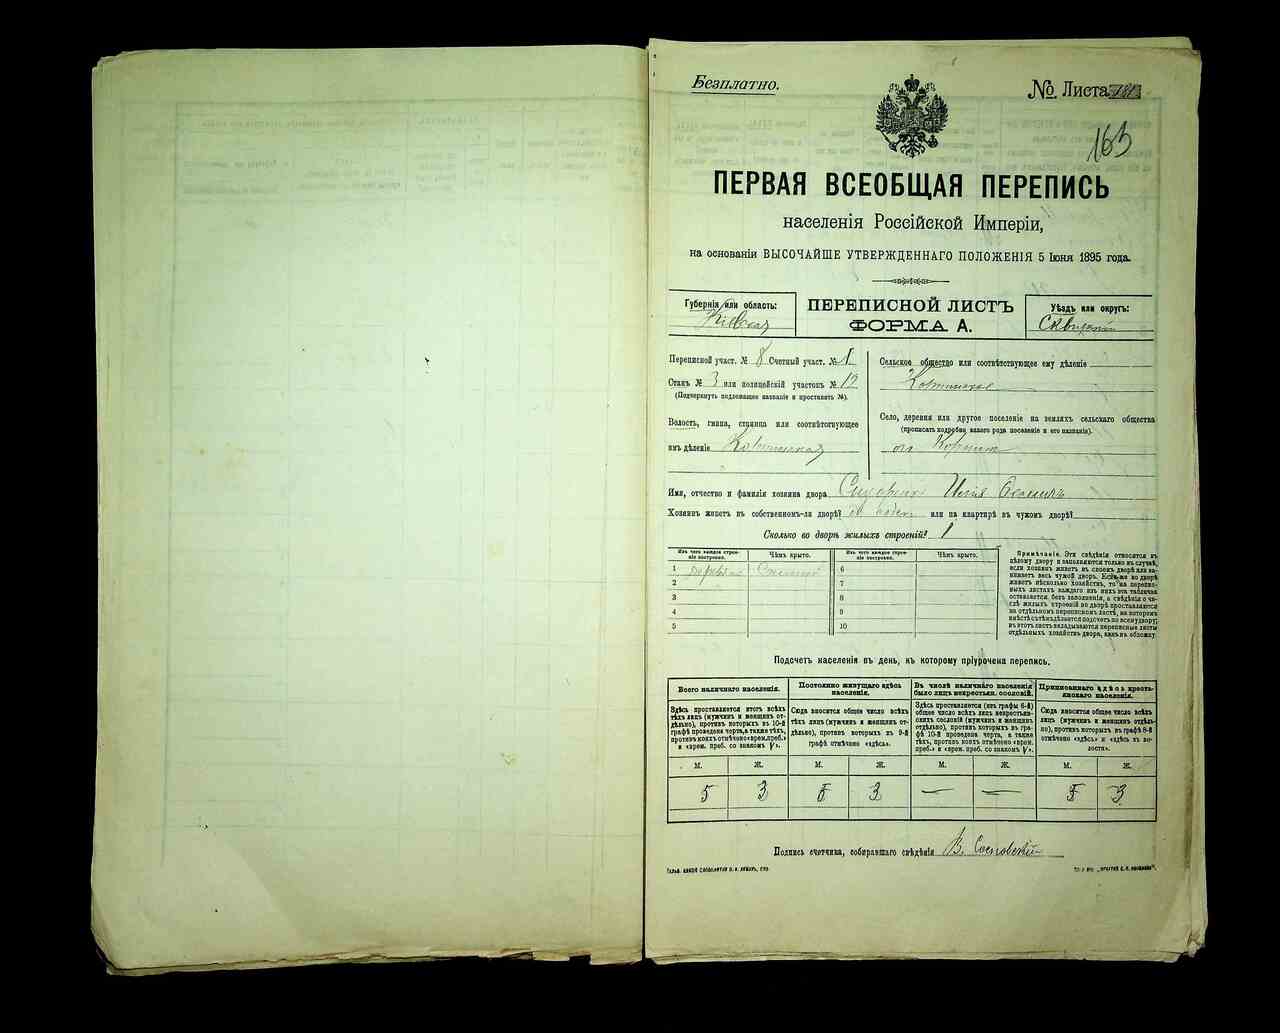 Безплатно.
№ Листа 181
163
ПЕРВАЯ ВСЕОБЩАЯ ПЕРЕПИСЬ
населенія Россійской Имперіи,
на основаніи ВЫСОЧАЙШЕ УТВЕРЖДЕННАГО ПОЛОЖЕНІЯ 5 Іюня 1895 года.
Губернія или область:
Кіевская
ПЕРЕПИСНОЙ ЛИСТЪ
ФОРМА А.
Уѣздъ или округъ:
Сквирскій
Переписной участ. № 8 Счетный участ. № 1
Станъ № 3 или полицейскій участокъ № 12
(Подчеркнуть подлежащее названіе и проставить №).
Волость, гмина, станица или соотвѣтствующее
имъ дѣленіе
Сельское общество или соотвѣтствующее ему дѣленіе
Село, деревня или другое поселеніе на земляхъ сельскаго общества
(прописать подробно какого рода поселеніе и его названіе).
Имя, отчество и фамилія хозяина двора
Хозяинъ живетъ въ собственномъ-ли дворѣ? или на квартирѣ въ чужомъ дворѣ?
Сколько во дворѣ жилыхъ строеній? 1
Изъ чего каждое строеніе построено.
Чѣмъ крыто.
Изъ чего каждое строеніе построено.
Чѣмъ крыто.
1
2
3
4
5
6
7
8
9
10
Примѣчаніе. Эти свѣдѣнія относятся къ
цѣлому двору и заполняются только въ случаѣ,
если хозяинъ живетъ въ своемъ дворѣ или занимаетъ
весь чужой дворъ. Если же во дворѣ
живетъ нѣсколько хозяйствъ, то на переписныхъ
листахъ каждаго изъ нихъ эта табличка
оставляется безъ заполненія, а свѣдѣнія о числѣ
жилыхъ строеній во дворѣ проставляются
на отдѣльномъ переписномъ листѣ, на которомъ
вмѣстѣ съ тѣмъ дѣлается подсчетъ по всему двору;
въ этотъ листъ вкладываются переписные листы
отдѣльныхъ хозяйствъ двора, какъ въ обложку.
Подсчетъ населенія въ день, къ которому пріурочена перепись.
Всего наличнаго населенія.
Постоянно живущаго здѣсь населенія.
Въ числѣ наличнаго населенія было лицъ некрестьян. сословій.
Приписаннаго здѣсь крестьянскаго населенія.
Здѣсь проставляется итогъ всѣхъ тѣхъ лиц (мужчинъ и женщинъ отдѣльно), противъ которыхъ въ 10-й графѣ проведена черта, а также тѣхъ, противъ коихъ отмѣчено «врем. преб.» и «врем. преб. со знакомъ V».
Сюда вносится общее число всѣхъ тѣхъ лицъ (мужчинъ и женщинъ отдѣльно), противъ которыхъ въ 9-й графѣ отмѣчено «здѣсь».
Здѣсь проставляется (изъ графы 6-й) общее число всѣхъ лицъ некрестьянскихъ сословій (мужчинъ и женщинъ отдѣльно), противъ которыхъ въ графѣ 10-й проведена черта, а также тѣхъ, противъ коихъ отмѣчено «врем. преб.» и «врем. преб. со знакомъ V».
Сюда вносится общее число всѣхъ лицъ (мужчинъ и женщинъ отдѣльно), противъ которыхъ въ графѣ 8-й отмѣчено «здѣсь» и «здѣсь въ волости».
М. Ж. М. Ж. М. Ж. М. Ж.
5 3 5 3 — — 5 3
Подпись счетчика, собиравшаго свѣдѣнія В. Сосновскій